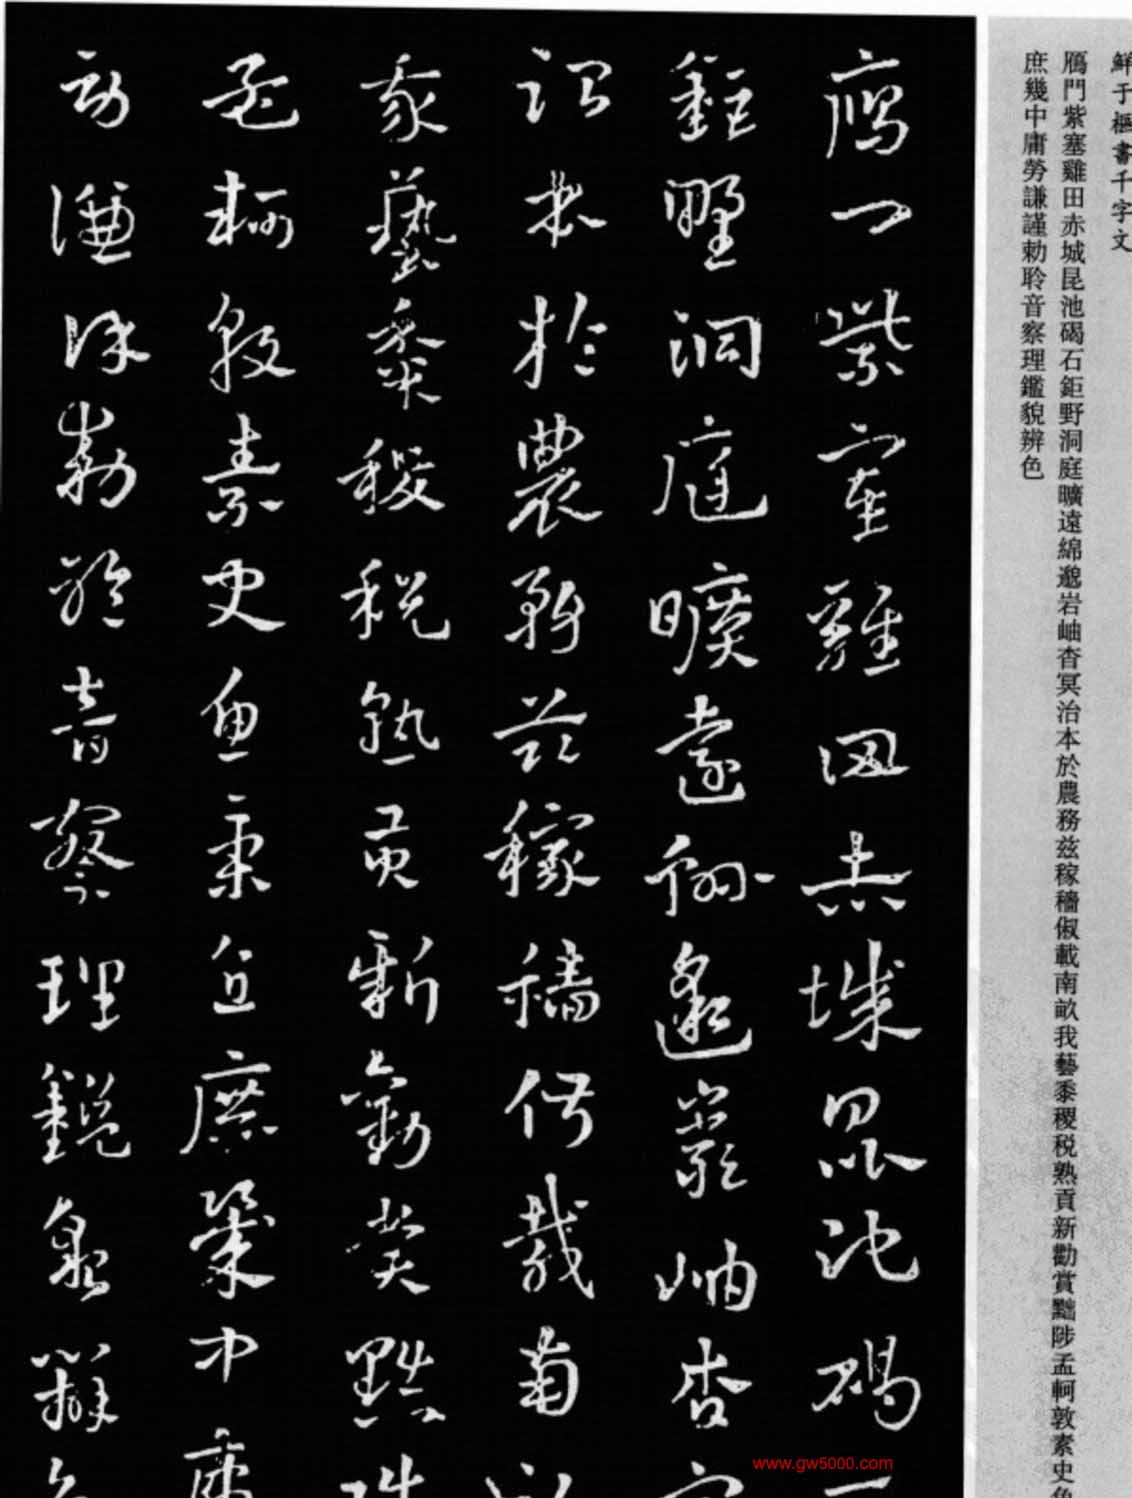 鮮于樞書千字文
鴈門紫塞雞田赤城昆池碣石鉅野洞庭曠遠綿邈岩岫杳冥治本於農務兹稼穡俶載南畝我藝黍稷税熟貢新勸賞黜陟孟軻敦素史魚
庶幾中庸勞謙謹勅聆音察理鑑貌辨色
鴈門紫塞雞田赤城昆池碣
鉅野洞庭曠遠綿邈巖岫杳
治本於農務茲稼穡俶載南
我藝黍稷税熟貢新勸賞黜陟
孟軻敦素史魚秉直庶幾中庸
勞謙謹勅聆音察理鑑貌辨色
www.gw5000.com